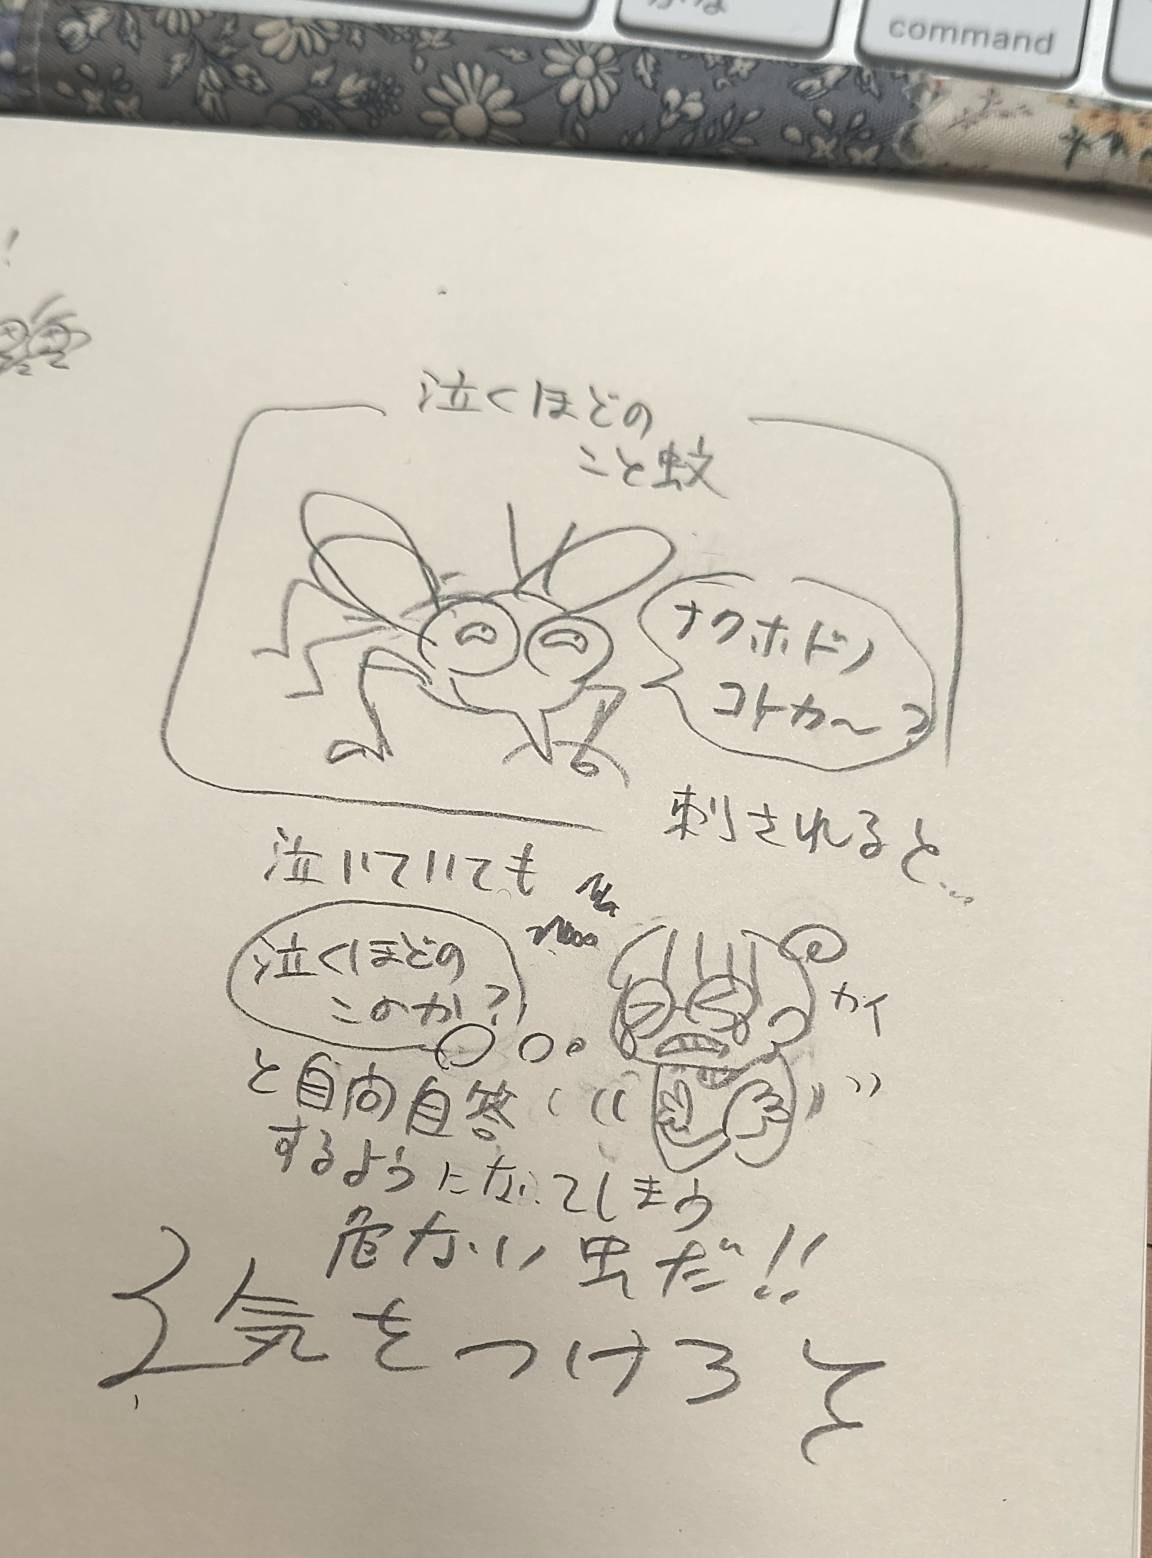 command
泣くほどの
こと蚊
ナクホドノ
コトカ〜?
刺されると…
泣いていても
泣くほどの
このか?
カイ
と自問自答
するようになってしまう
危ない虫だ!!
気をつけろ